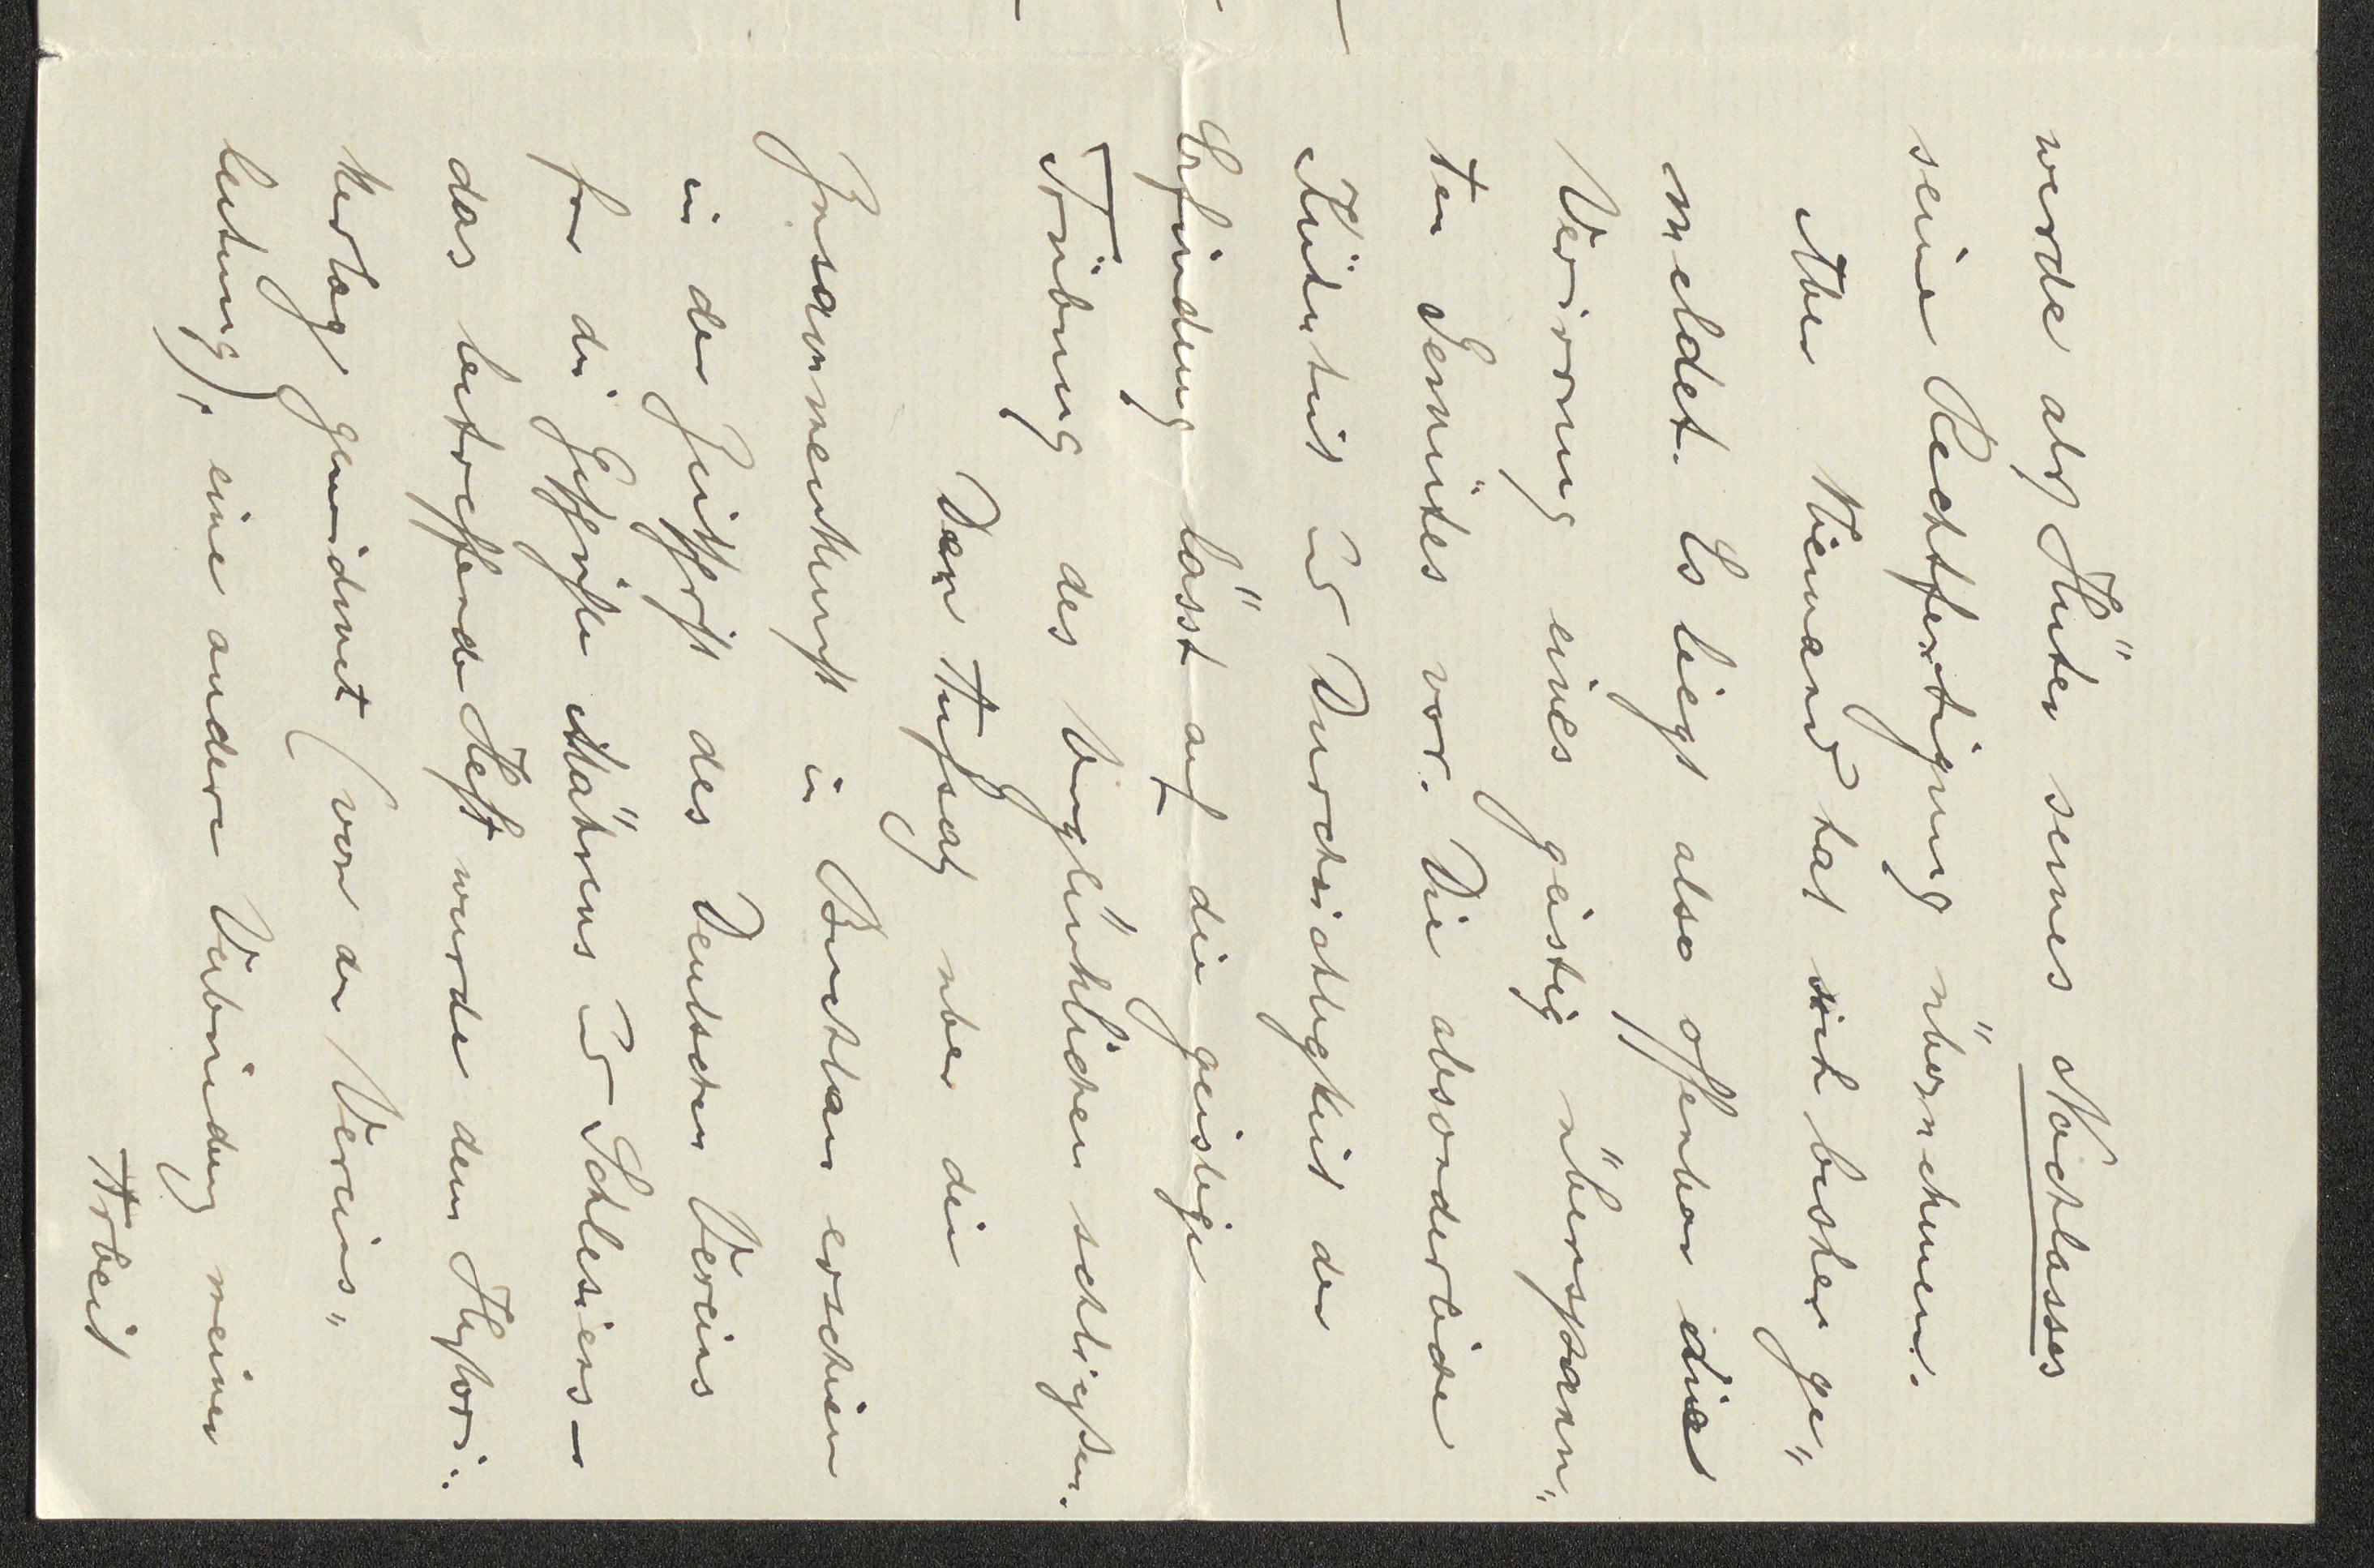 werde als Hüter seines Nachlasses
seine Rechtfertigung übernehmen.
Aber Niemand hat sich bisher ge„
meldet. Es liegt also offenbar die
Verirrung eines geistig überspann„
ten Gemütes vor. Die absonderliche
Kühnheit und Durchsichtigkeit der
Erfindung lässt auf die geistige
Trübung des Unglücklichen schließen.
Der Aufsatz über die
Zusammenkunft in Buchlau erschien
in der Zeitschrift des Deutschen Vereins
für die Geschichte Mährens und Schlesiens –
das betreffende Heft wurde dem Histori„
kertag gewidmet (von der Vereins„
leitung); eine andere Verbindung meiner
Arbeit